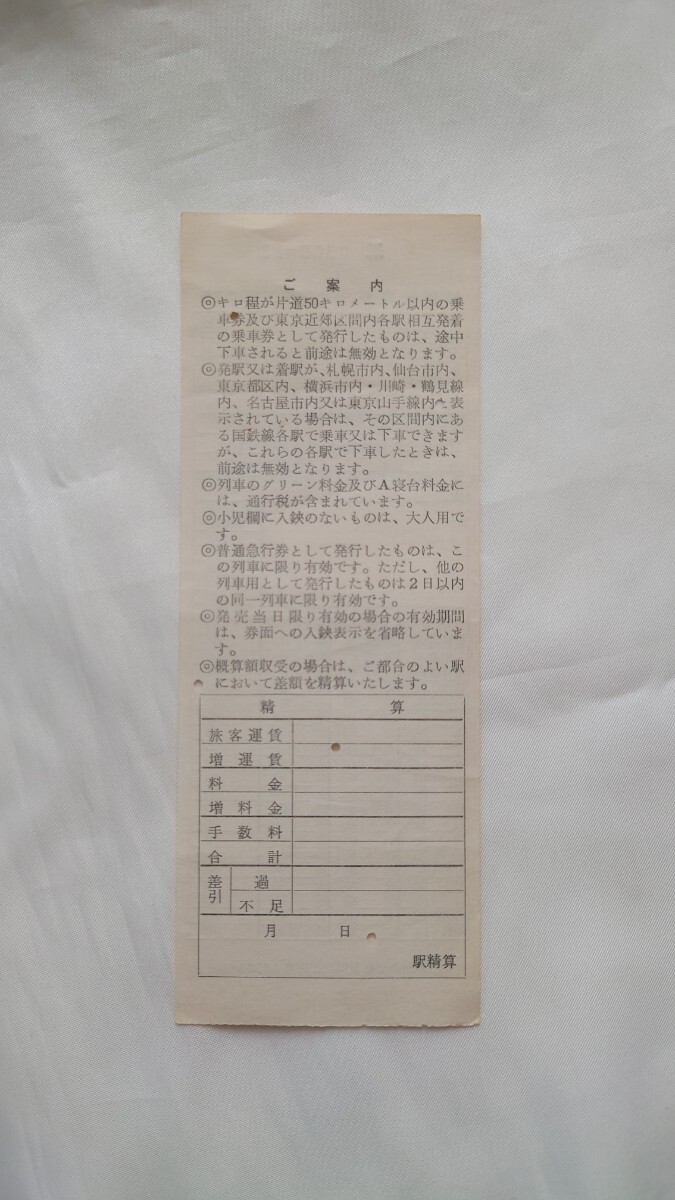 ご案内
◎キロ程が片道50キロメートル以内の乗
車券及び東京近郊区間内各駅相互発着
の乗車券として発行したものは、途中
下車されると前途は無効となります。
◎発駅又は着駅が、札幌市内、仙台市内、
東京都区内、横浜市内・川崎・鶴見線
内、名古屋市内又は東京山手線内と表
示されている場合は、その区間内にあ
る国鉄線各駅で乗車又は下車できます
が、これらの各駅で下車したときは、
前途は無効となります。
◎列車のグリーン料金及びA寝台料金に
は、通行税が含まれています。
◎小児欄に入鋏のないものは、大人用で
す。
◎普通急行券として発行したものは、こ
の列車に限り有効です。ただし、他の
列車用として発行したものは2日以内
の同一列車に限り有効です。
◎発売当日限り有効の場合の有効期間
は、券面への入鋏表示を省略していま
す。
◎概算額収受の場合は、ご都合のよい駅
において差額を精算いたします。
精算
旅客運賃
増運賃
料金
増料金
手数料
合計
差引 過
不足
月 日
駅精算